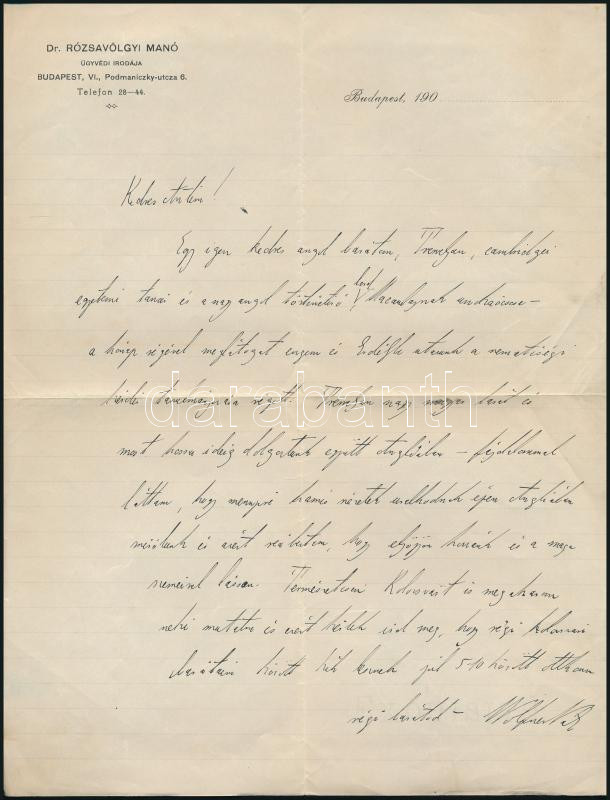 Dr. RÓZSAVÖLGYI MANÓ
ÜGYVÉDI IRODÁJA
BUDAPEST, VI., Podmaniczky-utcza 6.
Telefon 28—44.
Budapest, 190
Kedves
Egy igen kedves angol barátom, Trevelyan, cambridgei
egyetemi tanár és a nagy angol történetíró, lord Macaulaynak
a hónap végével meglátogat engem és Erdélybe utazunk a nemzetiségi
kérdés végett. Trevelyan nagy magyar barát és
mert hosszu ideig dolgoztunk együtt Angliában — fájdalommal
láttam, hogy mennyire hamis nézetek uralkodnak épen Angliában
mirólunk és azért reábirtam, hogy eljöjjön hozzánk és a maga
szemeivel lásson. Természetesen Kolozsvárt is meg akarom
neki mutatni és azért kérlek ird meg, hogy régi kolozsvári
barátaim között kik lesznek jul 5-10 között otthon
régi barátod —
darabanth